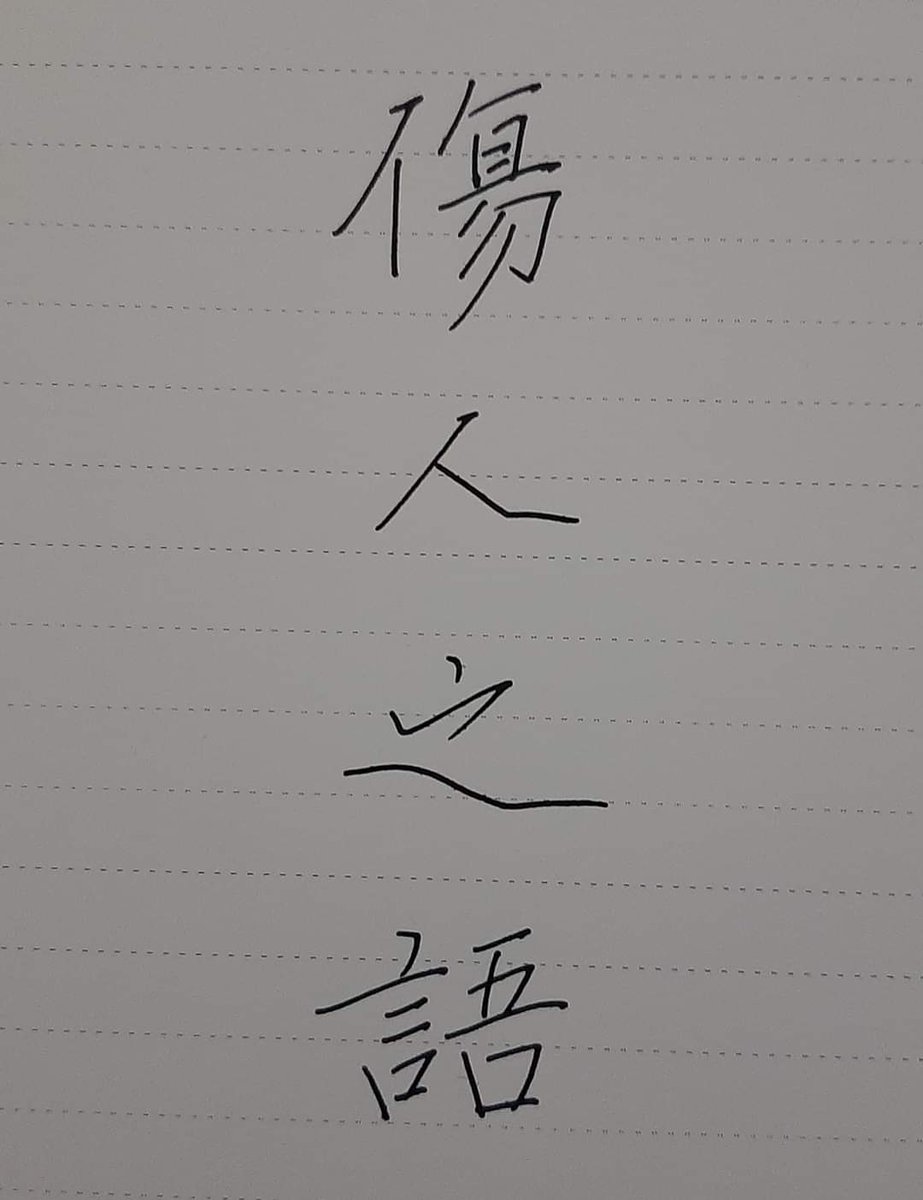 傷人之語